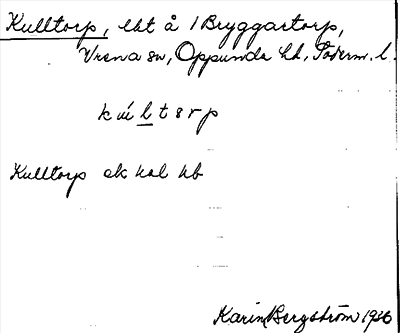 Kulltorp, lht å 1 Bryggartorp,
Vrena sn, Oppunda hd, Söderm. l.
kúltorp
Kulltorp ek kal hb
Karin Bergström 1936